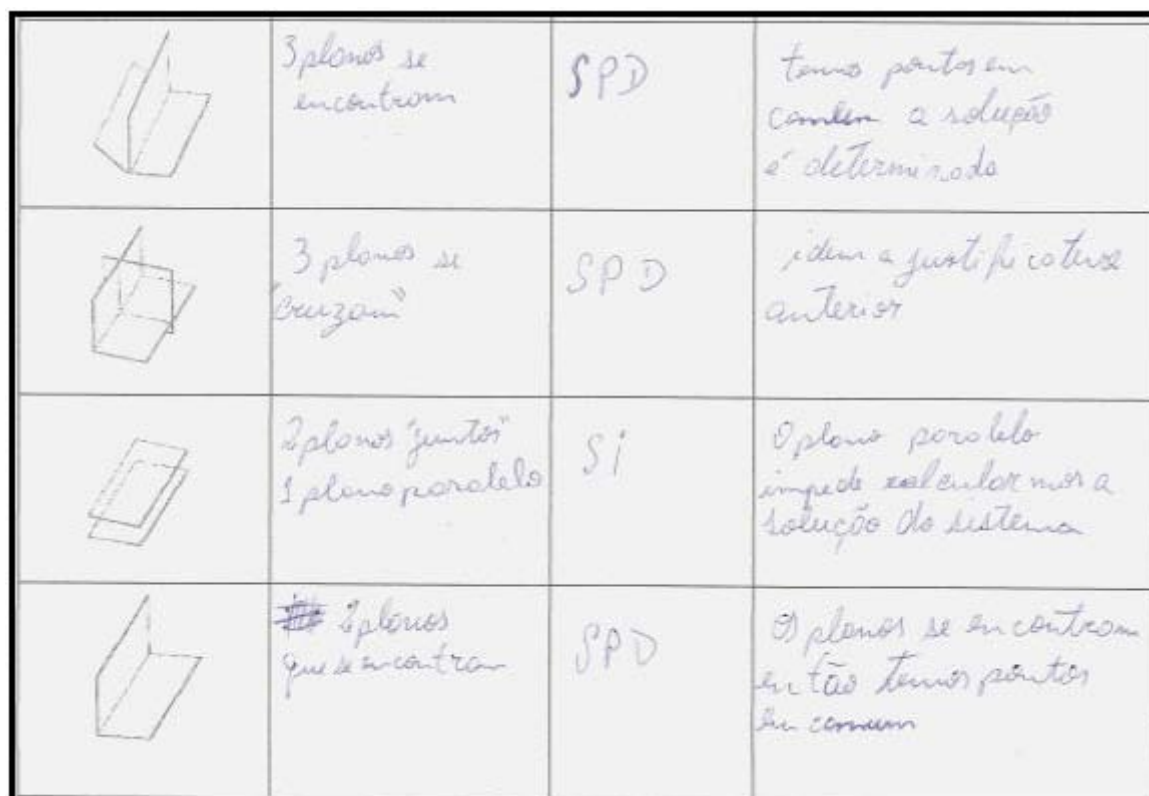 3 planos se
encontram
SPD
temos pontos em
comum a solução
é determinada
3 planos se
"cruzam"
SPD
idem a justificativa
anterior
2 planos "juntos"
1 plano paralelo
Si
O plano paralelo
impede calcularmos a
solução do sistema
2 planos
que se encontram
SPD
Os planos se encontram
então temos pontos
em comum